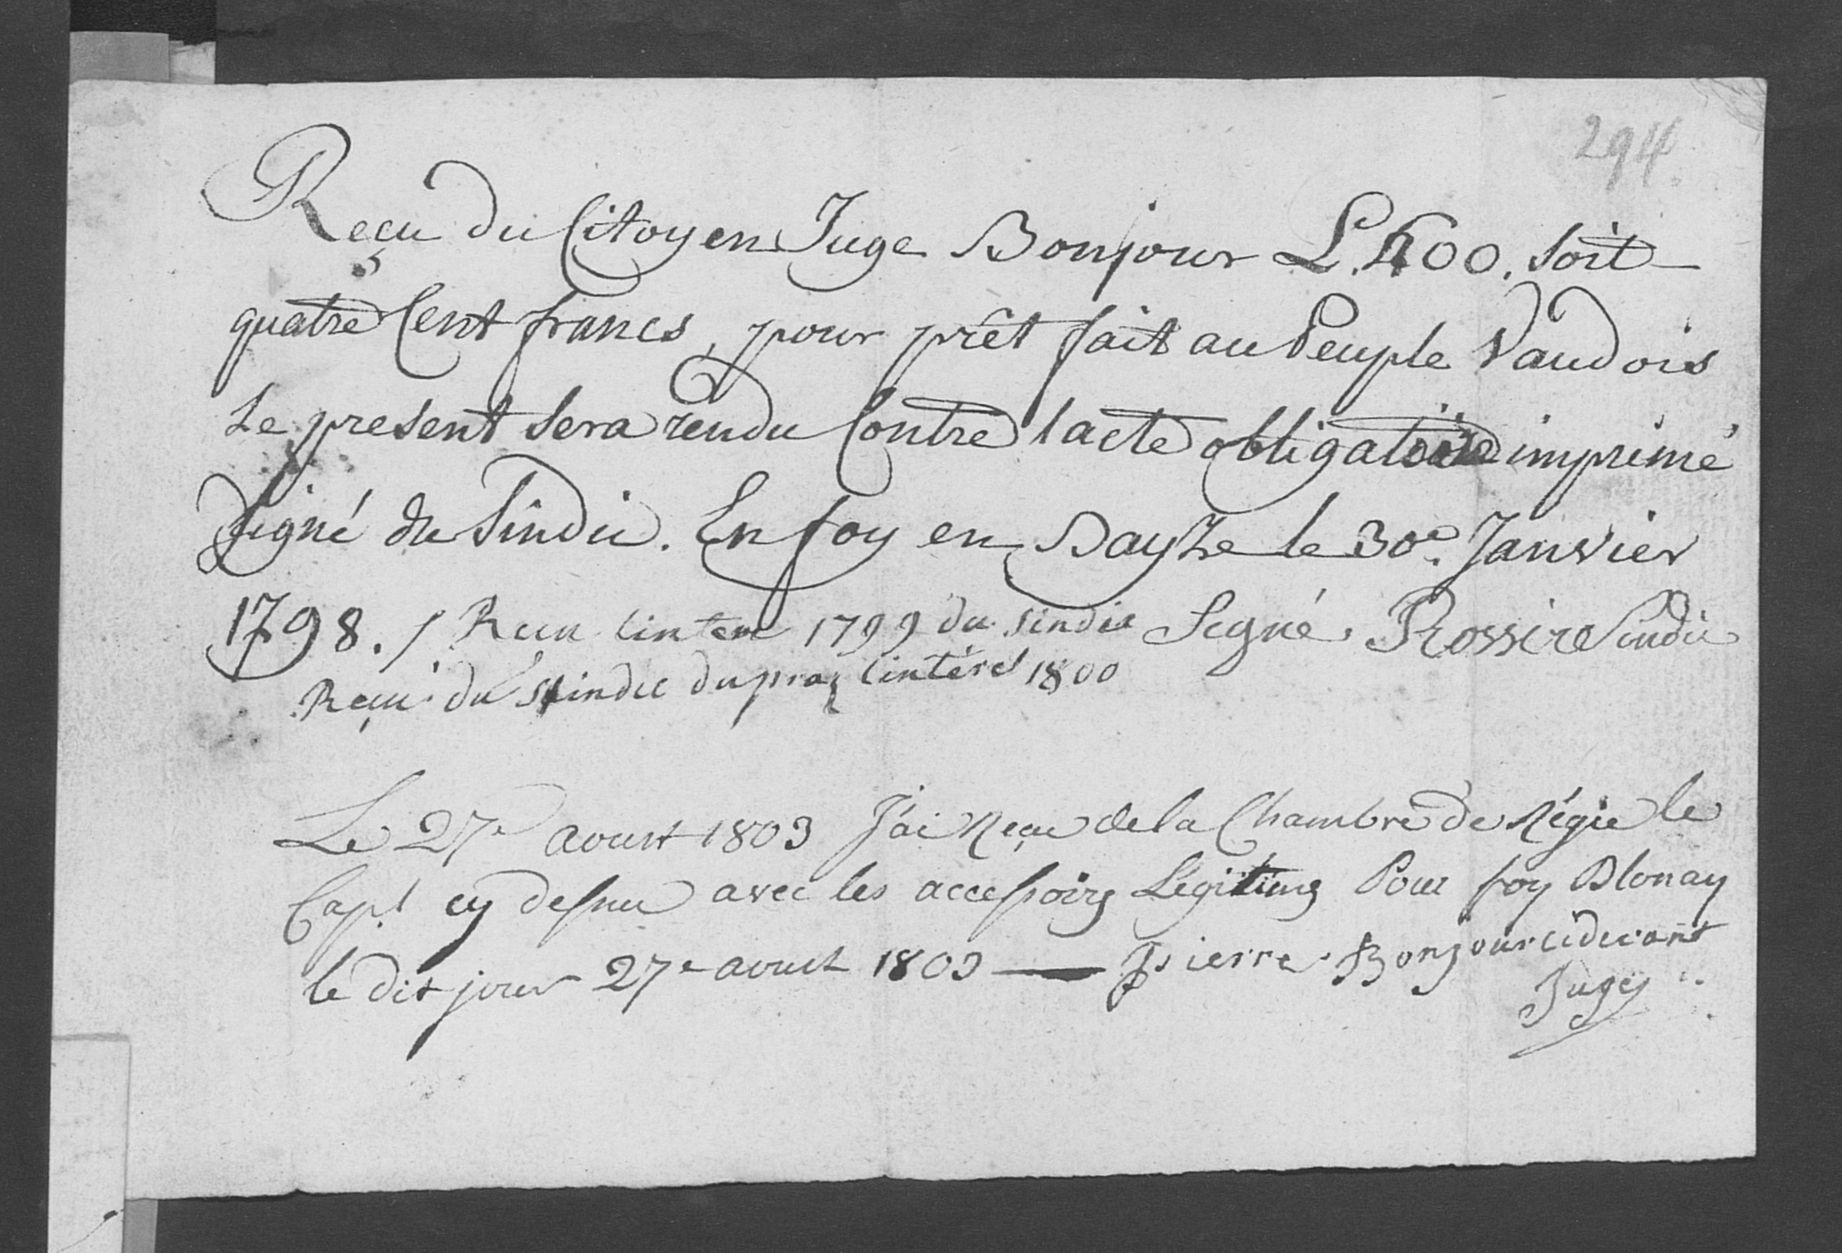 294.
Reçu du Citoyen Juge Bonjour L. 400. soit
quatre Cent francs, pour prêt fait au Peuple Vaudois
Le present sera rendu Contre lacte obligatoire imprimé
signé du Sindic. En foy en Bayze le 30e. Janvier
1798. / Reçu linter 1799 du sindic Signé, Rossire Sindic
Reçu du sindic dupraz lintérêt 1800
Le 27e aoust 1803 J'ai Reçu de la Chambre de Régie le
Capl cy dessus avec les accessoirs Légitims Pour foy Blonay
le dit jour 27e aoust 1803 — Pierre Bonjour cidevant
Juge